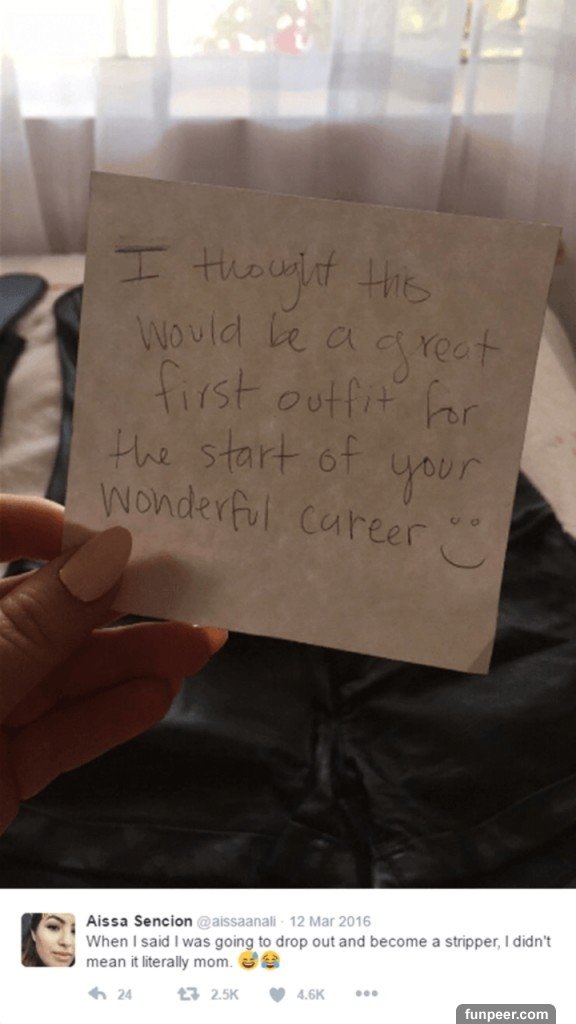 I thought this
would be a great
first outfit for
the start of your
wonderful career
Aissa Sencion @aissaanali · 12 Mar 2016
When I said I was going to drop out and become a stripper, I didn't
mean it literally mom. 😅😂
24 2.5K 4.6K
funpeer.com